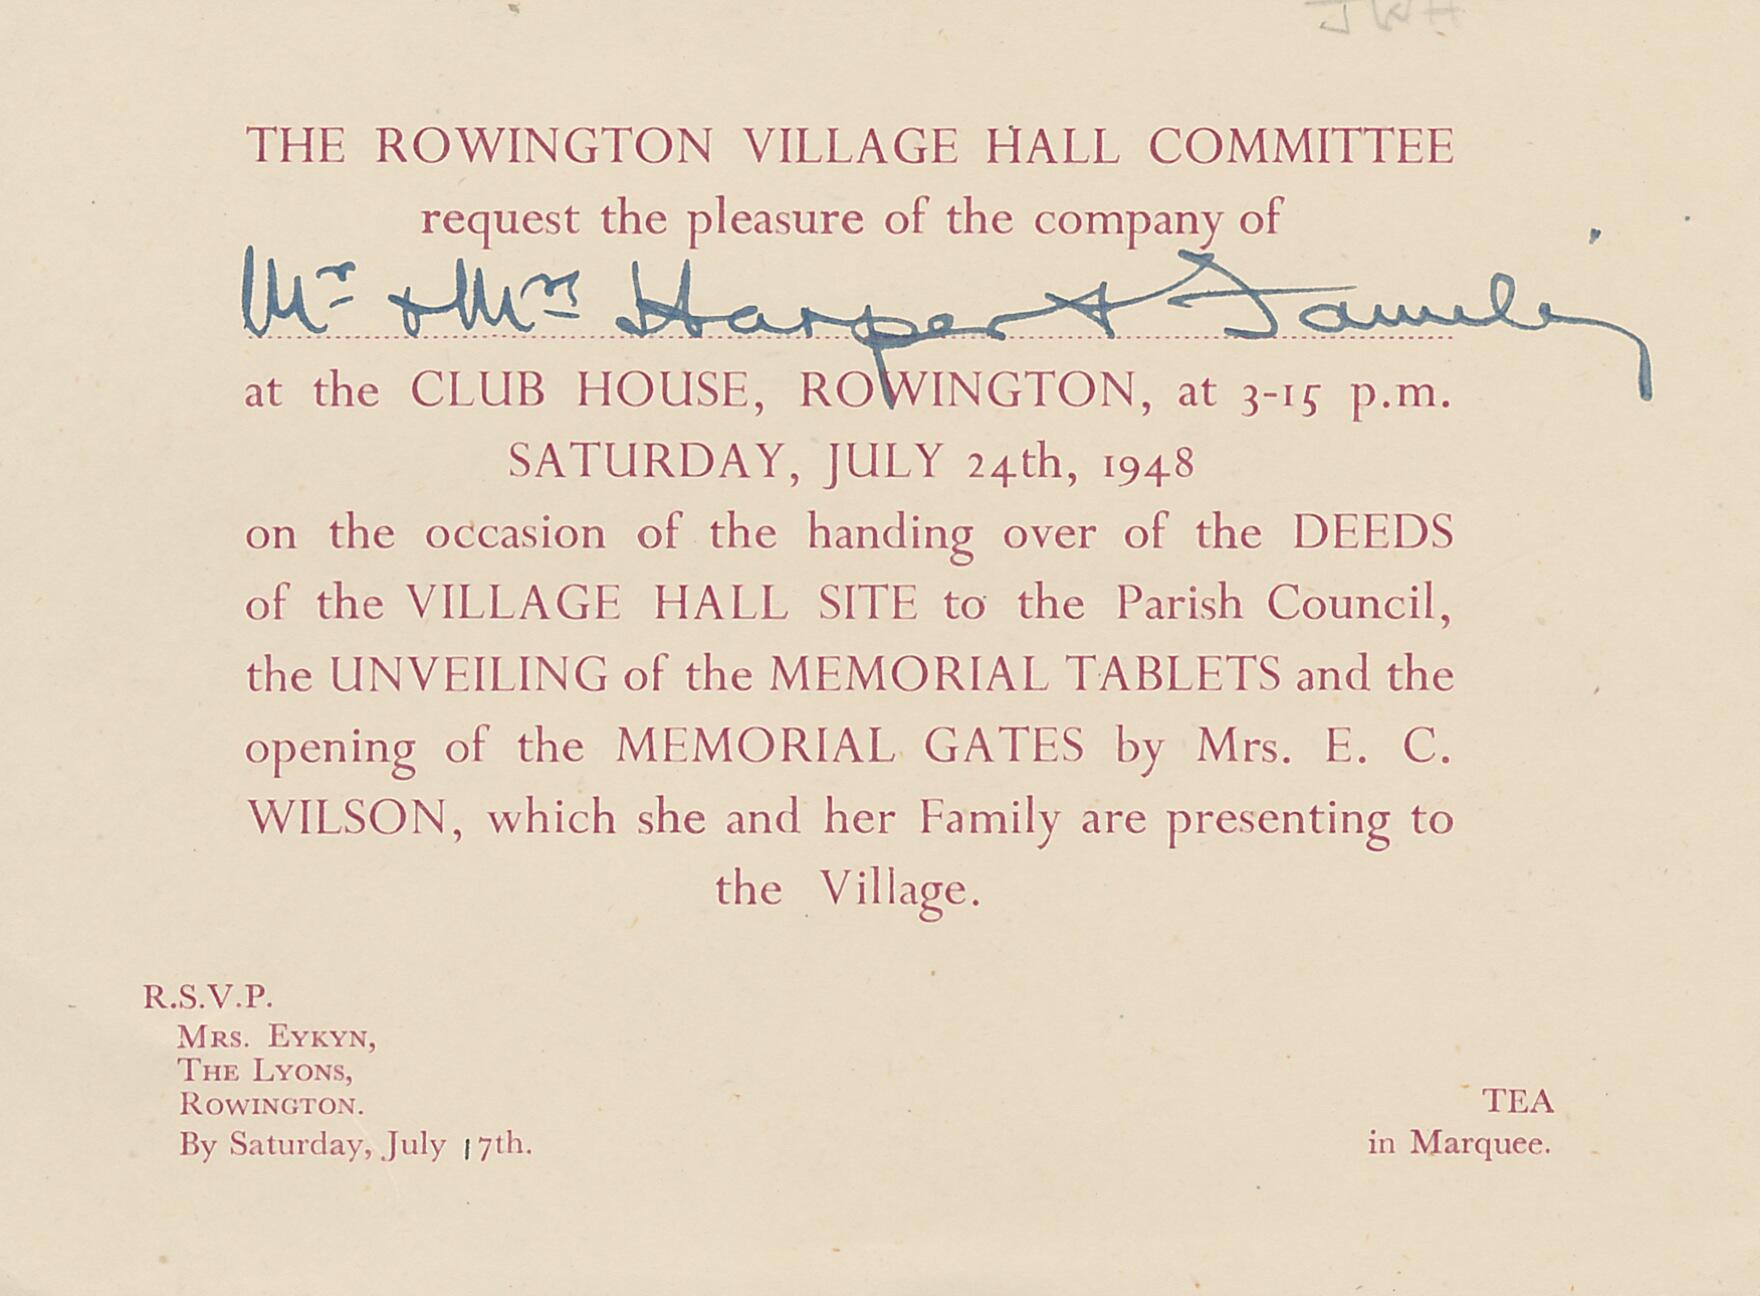 JWH
THE ROWINGTON VILLAGE HALL COMMITTEE
request the pleasure of the company of
Mr & Mrs Harper & Family
at the CLUB HOUSE, ROWINGTON, at 3-15 p.m.
SATURDAY, JULY 24th, 1948
on the occasion of the handing over of the DEEDS
of the VILLAGE HALL SITE to the Parish Council,
the UNVEILING of the MEMORIAL TABLETS and the
opening of the MEMORIAL GATES by Mrs. E. C.
WILSON, which she and her Family are presenting to
the Village.
R.S.V.P.
MRS. EYKYN,
THE LYONS,
ROWINGTON.
By Saturday, July 17th.
TEA
in Marquee.